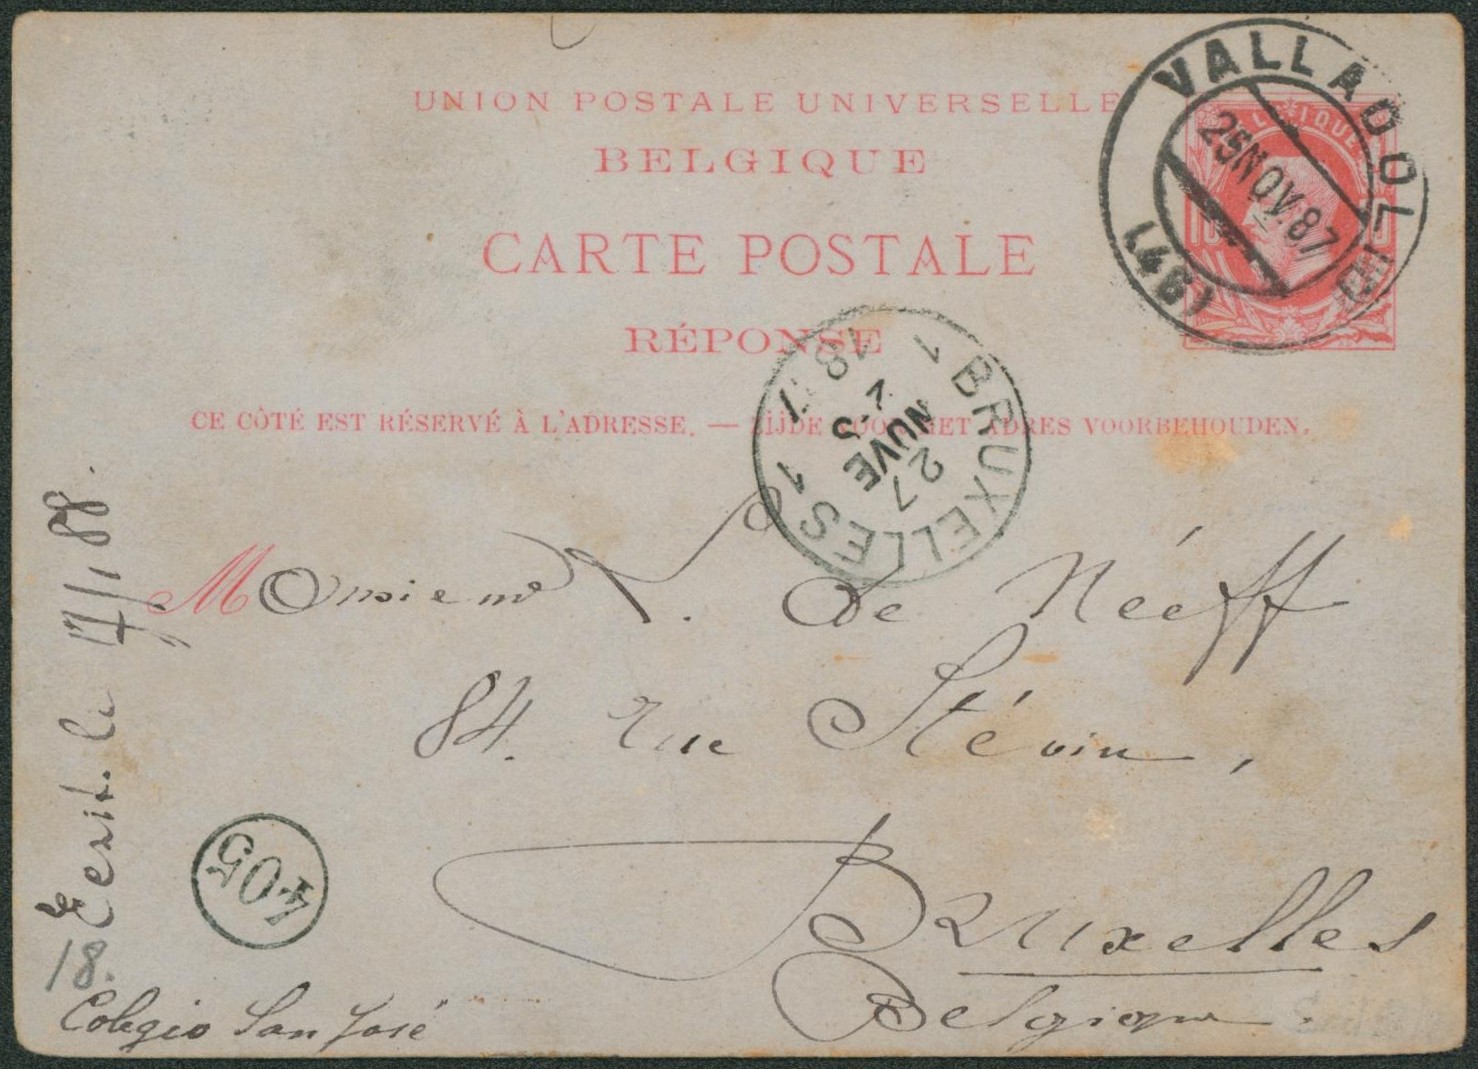 UNION POSTALE UNIVERSELLE
BELGIQUE
CARTE POSTALE
RÉPONSE
CE CÔTÉ EST RÉSERVÉ À L'ADRESSE. — ZIJDE VOOR HET ADRES VOORBEHOUDEN.
BELGIQUE
VALLADOLID
25 NOV. 87
(49)
1 BRUXELLES 1
27
NOVE
2-S
1887
Monsieur L. De Néeff
84. rue Stévin,
Bruxelles
Belgique.
405
Écrit. le 17/1 88.
18.
Colegio San José